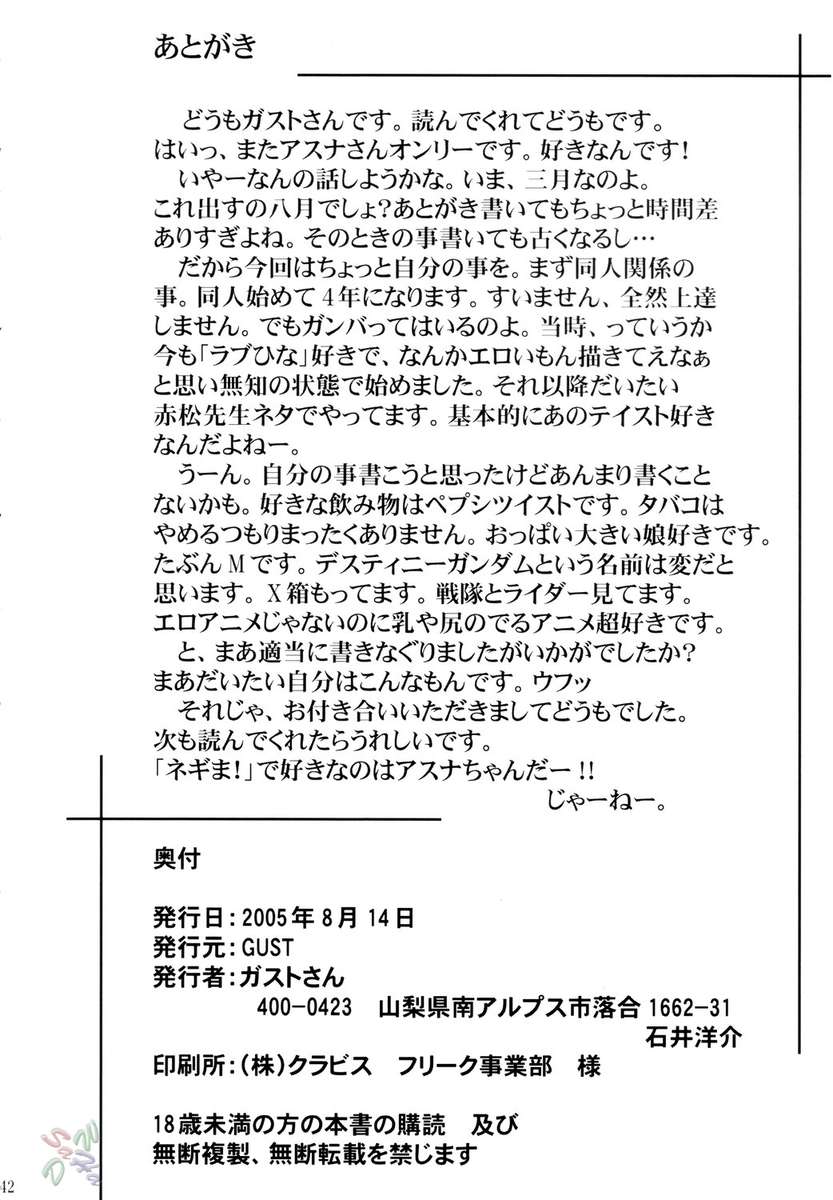 あとがき
どうもガストさんです。読んでくれてどうもです。
はいっ、またアスナさんオンリーです。好きなんです!
いやーなんの話しようかな。いま、三月なのよ。
これ出すの八月でしょ?あとがき書いてもちょっと時間差
ありすぎよね。そのときの事書いても古くなるし…
だから今回はちょっと自分の事を。まず同人関係の
事。同人始めて4年になります。すいません、全然上達
しません。でもガンバってはいるのよ。当時、っていうか
今も「ラブひな」好きで、なんかエロいもん描きてえなぁ
と思い無知の状態で始めました。それ以降だいたい
赤松先生ネタでやってます。基本的にあのテイスト好き
なんだよねー。
うーん。自分の事書こうと思ったけどあんまり書くこと
ないかも。好きな飲み物はペプシツイストです。タバコは
やめるつもりまったくありません。おっぱい大きい娘好きです。
たぶんMです。デスティニーガンダムという名前は変だと
思います。X箱もってます。戦隊とライダー見てます。
エロアニメじゃないのに乳や尻のでるアニメ超好きです。
と、まあ適当に書きなぐりましたがいかがでしたか?
まあだいたい自分はこんなもんです。ウフッ
それじゃ、お付き合いいただきましてどうもでした。
次も読んでくれたらうれしいです。
「ネギま!」で好きなのはアスナちゃんだー!!
じゃーねー。
奥付
発行日:2005年8月14日
発行元:GUST
発行者:ガストさん
400-0423 山梨県南アルプス市落合1662-31
石井洋介
印刷所:(株)クラビス フリーク事業部 様
18歳未満の方の本書の購読 及び
無断複製、無断転載を禁じます
42